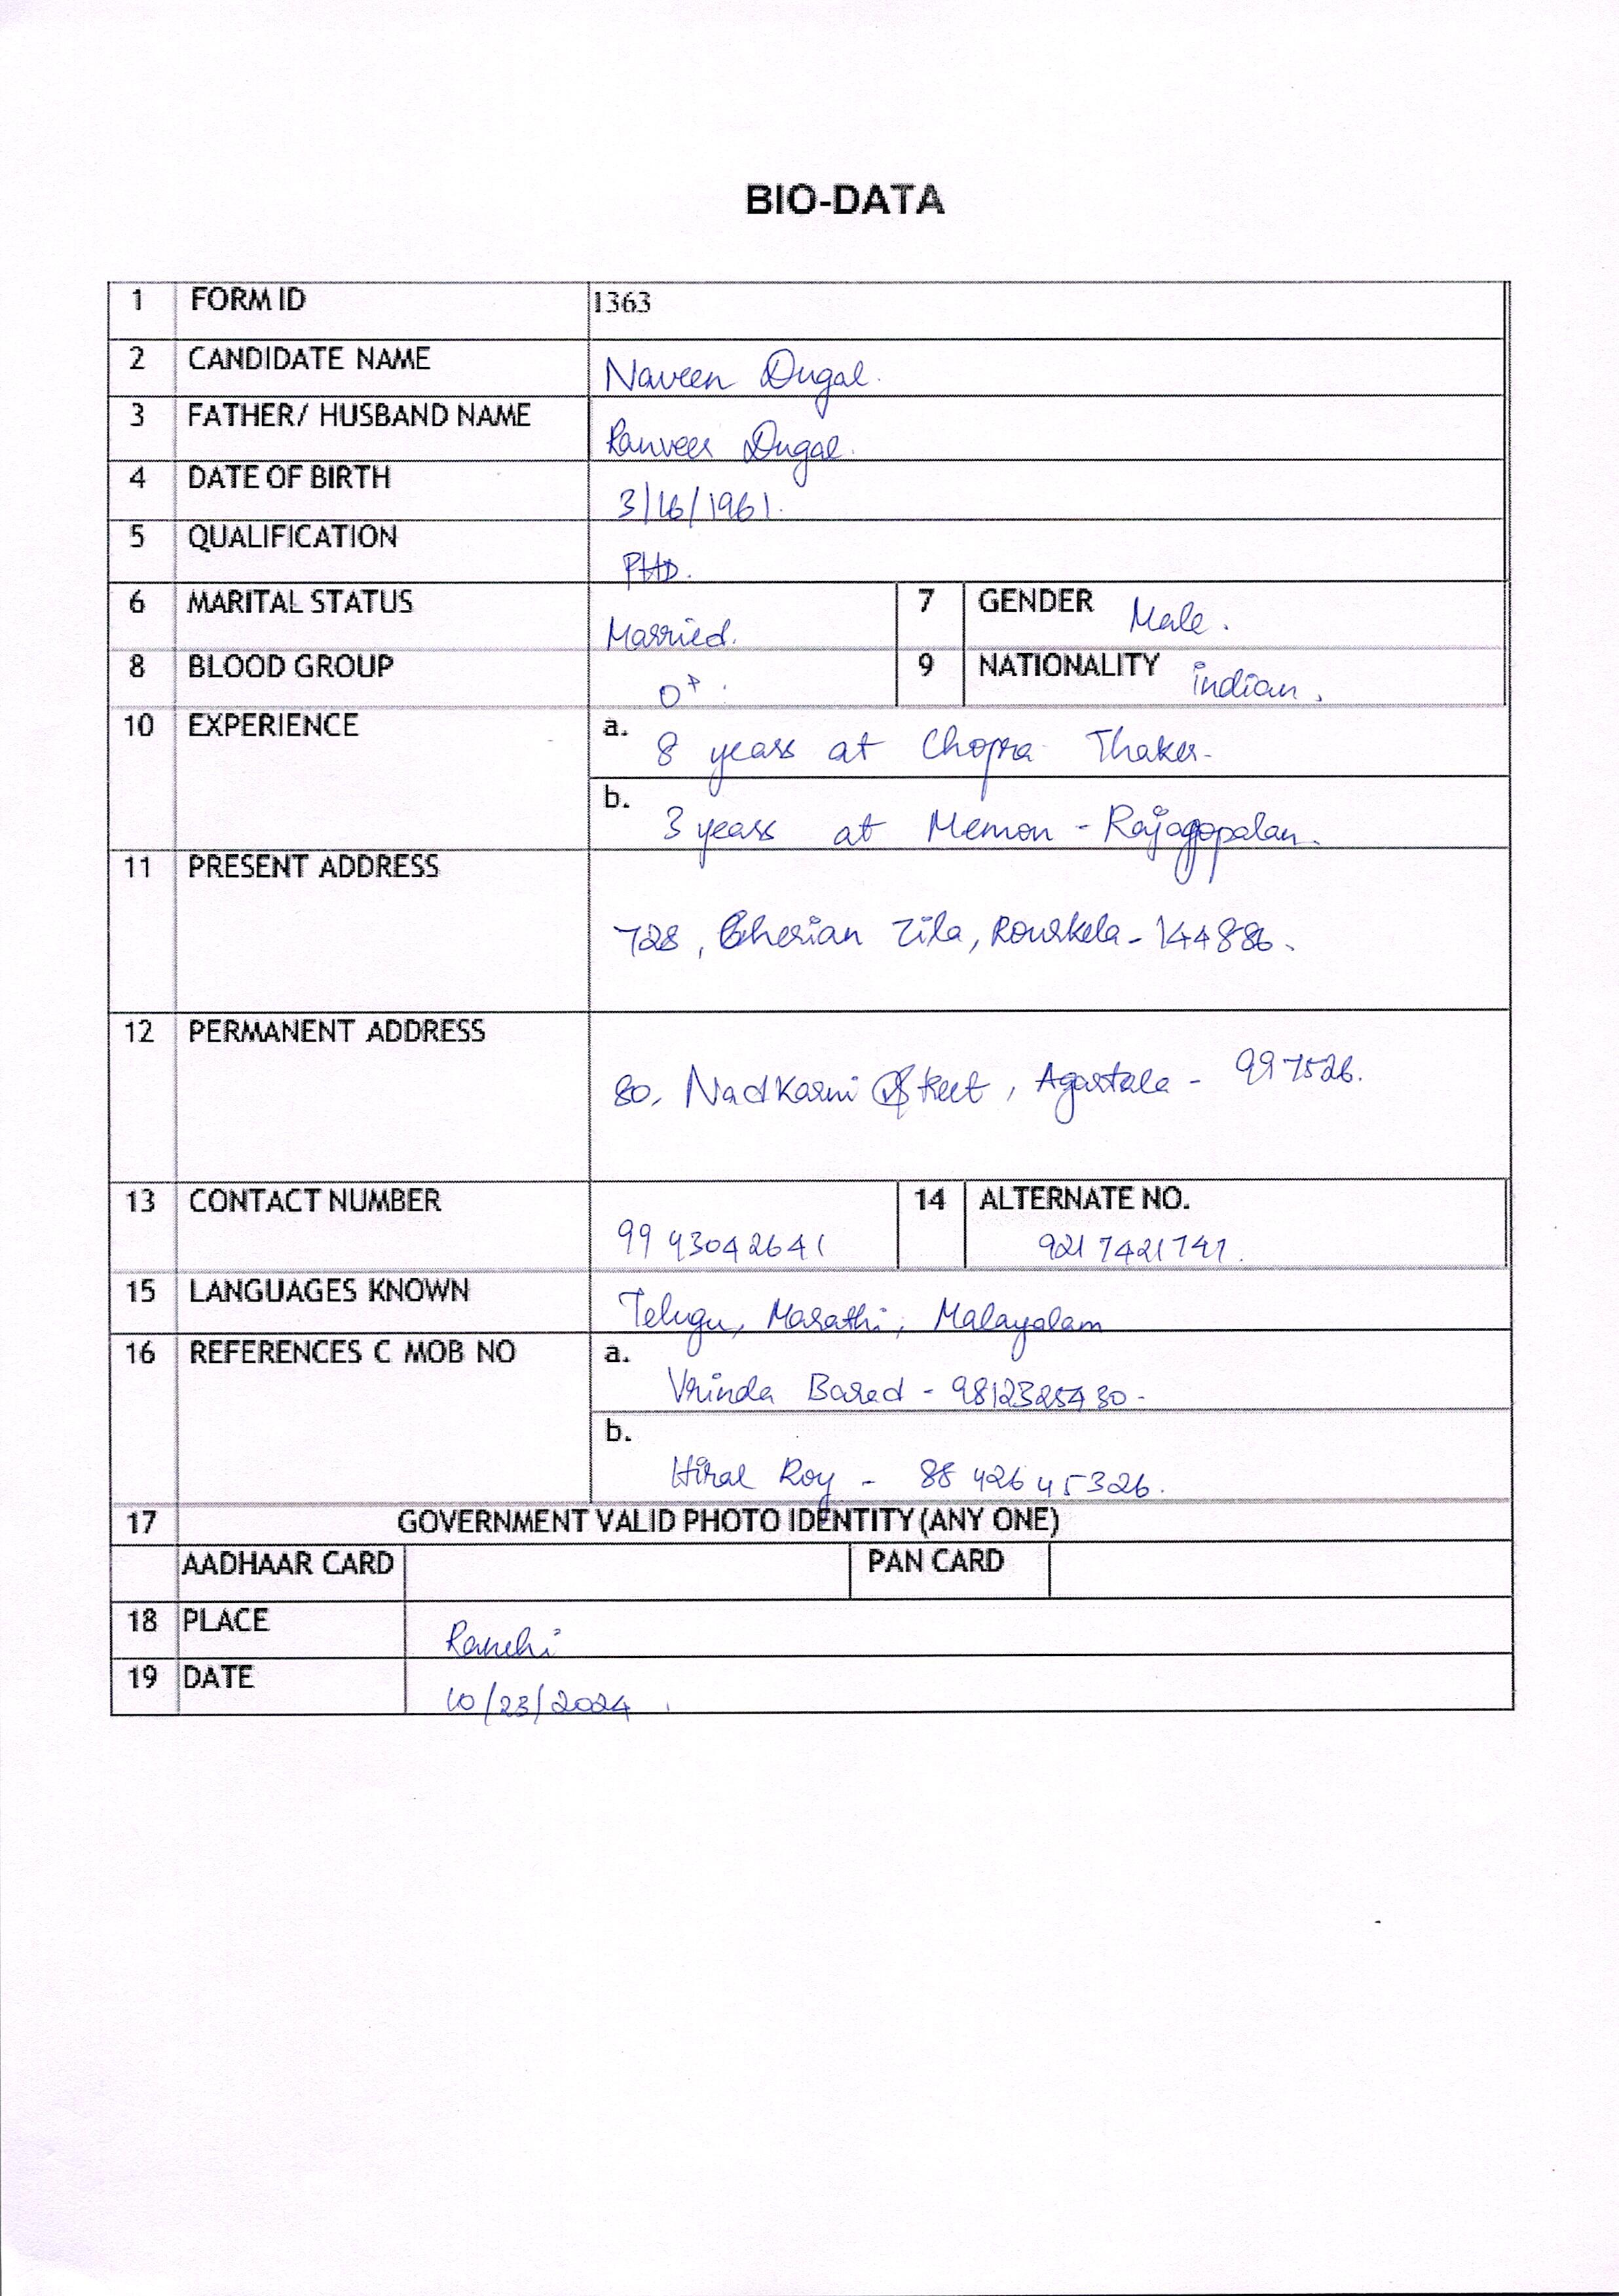 BIO-DATA
1 FORM ID 1363
2 CANDIDATE NAME Naveen Dugal.
3 FATHER/ HUSBAND NAME Ranveer Dugal.
4 DATE OF BIRTH 3/16/1961.
5 QUALIFICATION PHD.
6 MARITAL STATUS Married. 7 GENDER Male.
8 BLOOD GROUP O+. 9 NATIONALITY indian.
10 EXPERIENCE a. 8 years at Chopra Thaker-
b. 3 years at Memon - Rajagopalan.
11 PRESENT ADDRESS
728, Cherian Zila, Rourkela - 144886.
12 PERMANENT ADDRESS
80, Nadkarni Street, Agartala - 997526.
13 CONTACT NUMBER 9993042641 14 ALTERNATE NO.
9217421747.
15 LANGUAGES KNOWN Telugu, Marathi, Malayalam
16 REFERENCES C MOB NO a. Vrinda Barad - 9812325430-
b. Hiral Roy - 8842645326.
17 GOVERNMENT VALID PHOTO IDENTITY (ANY ONE)
AADHAAR CARD PAN CARD
18 PLACE Ranchi
19 DATE 10/23/2024.